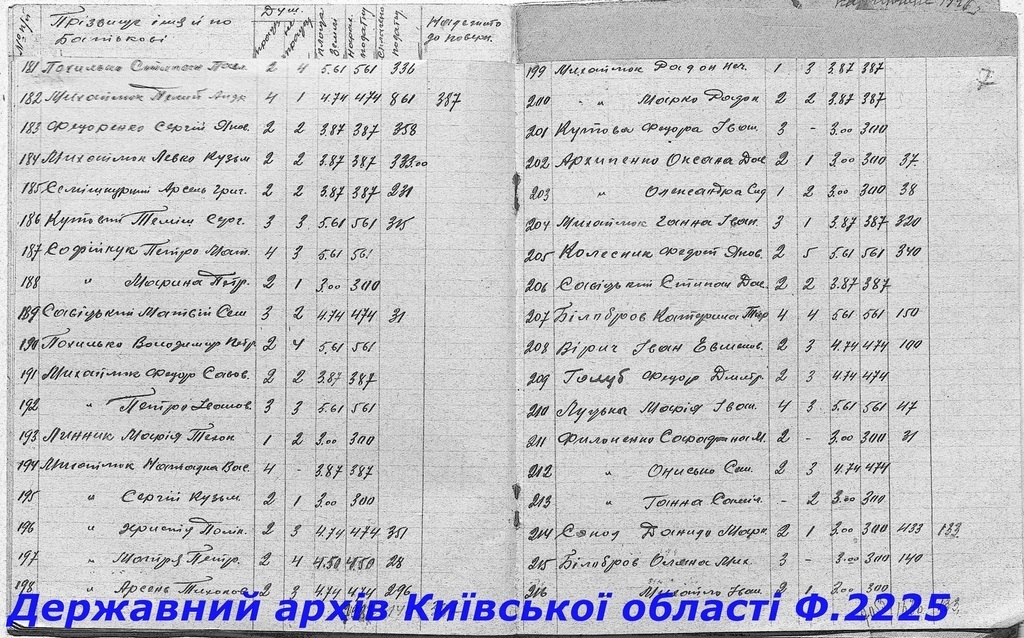 № п/п Прізвище і імя й по Батькові Душ. площа землі нарах. податку сплачено податку Надежито до поверн.
181 Похилько Степан Пав. 2 4 5.61 561 336
182 Михайлюк Пелій Андр 4 1 4.74 474 861 387
183 Федоренко Сергій Яков. 2 2 3.87 387 358
184 Михайлюк Левко Кузьм 2 2 3.87 387 333.00
185 Арсень Григ. 2 2 3.87 387 231
186 Кутовий Серг. 3 3 5.61 561 315
187 Петро Мат. 4 3 5.61 561
188 " Марина Петр. 2 1 3.00 300
189 Савіцький Матвій Сем 3 2 4.74 474 31
190 Похилько Володимир Петр 2 4 5.61 561
191 Михайлюк Федор Савов. 2 2 3.87 387
192 " Петро 3 3 5.61 561
193 Линник Марія Тихон 1 2 3.00 300
194 Михайлюк Вас. 4 - 3.87 387
195 " Сергій Кузьм 2 1 3.00 300
196 " 2 3 4.74 474 351
197 " Мотря Петр. 2 4 4.50 4.50 28
198 " Арсень Тихонов 2 3 4.74 474 296
199 Михайлюк Радон 1 3 3.87 387
200 " Марко Радон 2 2 3.87 387
201 Кутова Федора Іван. 3 - 3.00 300
202 Архипенко Оксана 2 1 3.00 300 37
203 " Олександра Сид 1 2 3.00 300 38
204 Михайлюк Ганна Іван. 3 1 3.87 387 320
205 Колесник Федот Яков. 2 5 5.61 561 340
206 Савіцький Степан 2 2 3.87 387
207 Білобров Катерина 4 4 5.61 561 150
208 Вірич Іван 2 3 4.74 474 100
209 Голуб Федор Дмитр 2 3 4.74 474
210 Луцька Марія Іван. 4 3 5.61 561 47
211 Филоненко М. 2 - 3.00 300 31
212 " Онисько Сем. 2 3 4.74 474
213 " Ганна - 2 3.00 300
214 Сокол Данило Марк 2 1 3.00 300 433 133
215 Білобров Олена Мик. 3 - 3.00 300 140
216 " Михайло Іван. 2 1 3.00 300
7
Державний архів Київської області Ф.2225